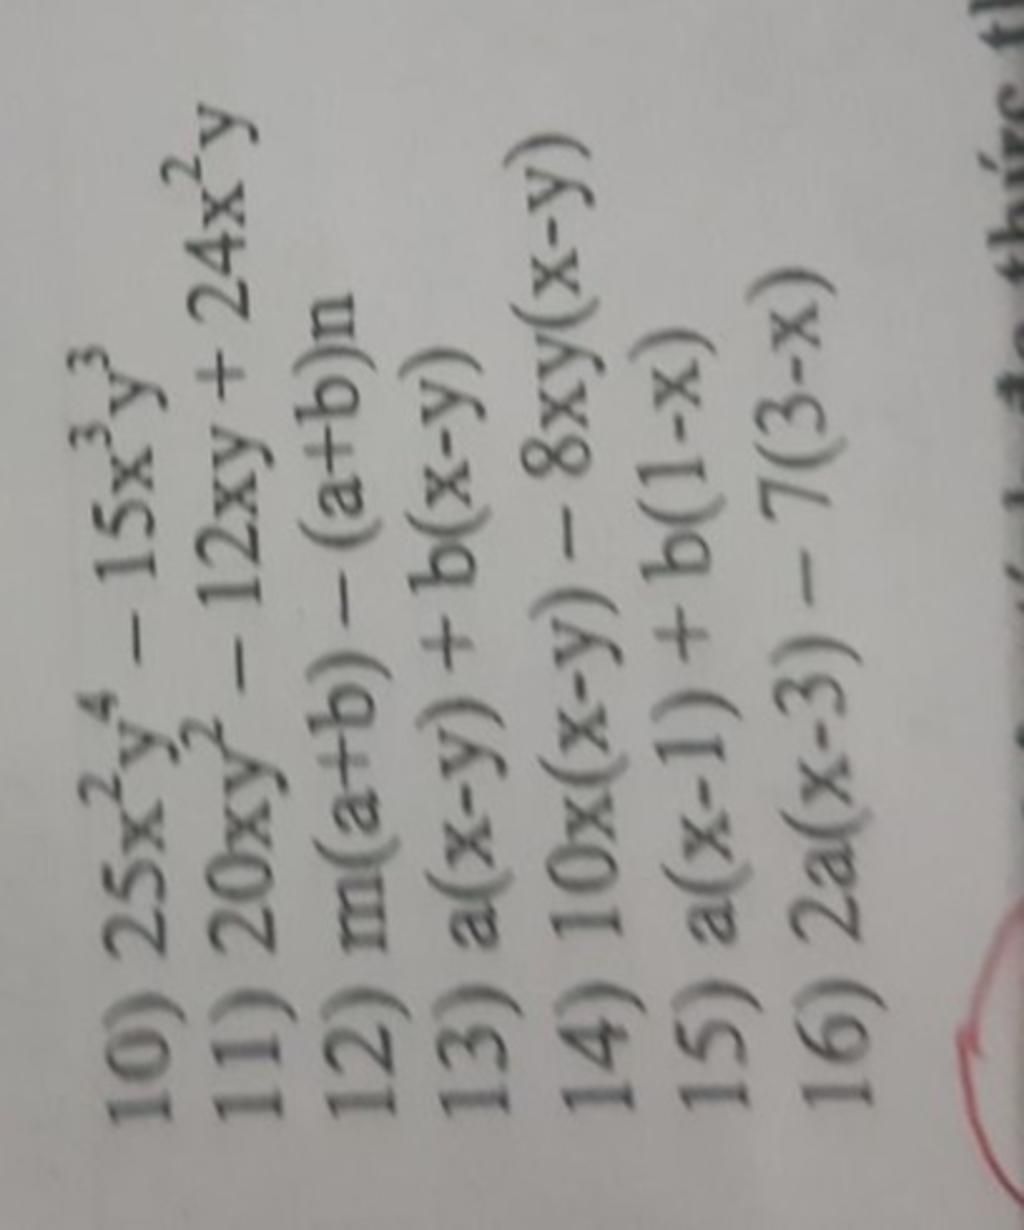 10) 25x²y⁴ – 15x³y³
11) 20xy² – 12xy + 24x²y
12) m(a+b) – (a+b)n
13) a(x-y) + b(x-y)
14) 10x(x-y) – 8xy(x-y)
15) a(x-1) + b(1-x)
16) 2a(x-3) – 7(3-x)